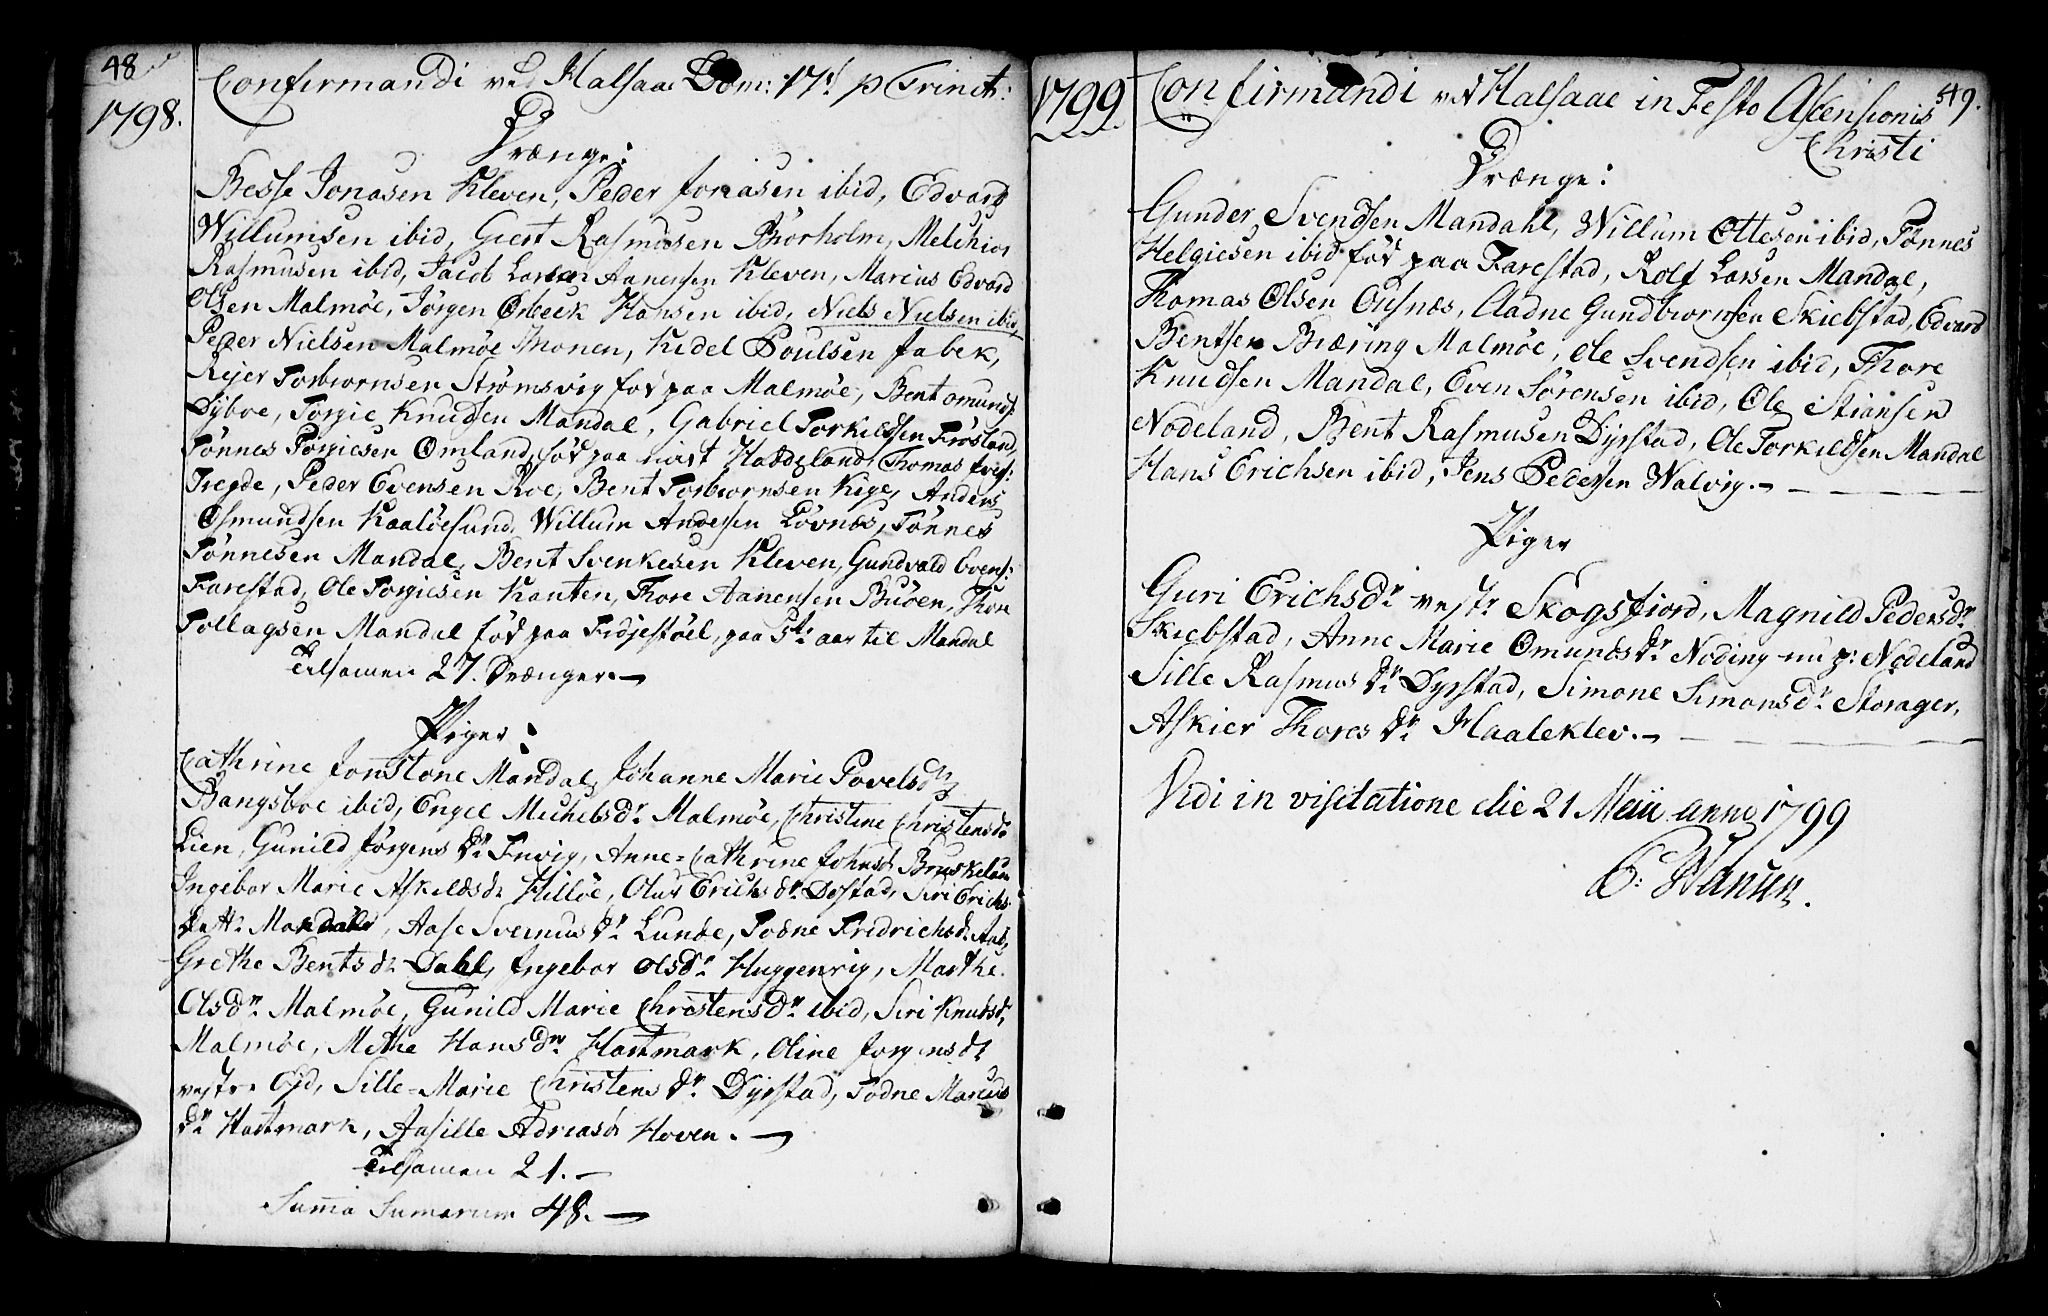 48
1798.
Confirmandi ved Halsaae Dom: 17d p Trinit:
Drænge:
Besse Jonasen Kleven, Peder Jonasen ibid, Edvard
Willumsen ibid, Giert Rasmusen Biörholm, Melchior
Rasmusen ibid, Jacob Larsen Aanensen Kleven, Marcus Edvard
Olsen Malmöe, Jörgen Orbeck Hansen ibid, Niels Nielsen ibid,
Peder Nielsen Malmöe Monen, Kedel Poulsen Jabek,
Rejer Torbiornsen Strömsvig fød paa Malmöe, Bent omunds:
Dÿboe, Törgie Knudsen Mandal, Gabriel Torkildsen Frösland,
Tönnes Törgiesen Omland fød paa nort Haddeland, Thomas
Tregde, Peder Evensen Roe, Bent Torbiornsen Kige, Anders
Osmundsen Kaalöesund, Willum Andersen Lövnæs, Tönnes
Tönnesen Mandal, Bent Svenkesen Kleven, Gundvald Evens:
Farestad, Ole Torgiesen Hauten, Thore Aanensen Buöen, Thore
Tollagsen Mandal fød paa Fidjestöel, paa 5te aar til Mandal
Tilsamen 27. Drænger.—
Piger:
Cathrine Jonstone Mandal, Johanne Marie Povelsdr
Bangsboe ibid, Engel Michelsdr Malmöe, Christine Christensdr
Lien, Gunild Jörgensdr Tnvig, Anne-Cathrine Johnsdr Bruskeland
Ingebor Marie Askildsdr Hillöe, Olus Erichsdr Döstad, Siri Erichs
Dattr Mandahl, Aase Svennusdr Lunde, Todne Fridrichsdr
Grethe Bentsdr Dahl, Ingebor Olsdr Huggenvig, Marthe
Olsdr Malmöe, Gunild Marie Christensdr ibid, Siri Knudsdr
Malmöe, Methe Hansdr Hartmark, Oline Jorgensdr
vestre Ojd, Sille-Marie Christensdr Dyrstad, Todne Marcus
dr Hartmark, Aasille Adreasdr Hoven.—
Tilsamen 21.—
Suma Sumarum 48.—
1799
49.
Confirmandi ved Halsaae in Festo Ascensionis
Christi
Drænge:
Gunder Svendsen Mandahl, Willum Ottesen ibid, Tönnes
Helgiesen ibid fød paa Farestad, Rolf Larsen Mandal,
Thomas Olsen Ousnæs, Aadne Gundbiornsen Skiebstad, Edvard
Bentsen Biæring Malmöe, Ole Svendsen ibid, Thore
Knudsen Mandal, Even Sörensen ibid, Ole Stiansen
Nodeland, Bent Rasmusen Dyrstad, Ole Torkildsen Mandal
Hans Erichsen ibid, Jens Pedersen Valvig.—
Piger
Guri Erichsdr vestr Skogsfiord, Magnild Pedersdr
Skiebstad, Anne Marie Omundsdr Noding nu p: Nödeland
Sille Rasmusdr Dyrstad, Simone Simonsdr Storager,
Askier Thoresdr Haaleklev.—
Vidi in visitatione die 21 Maii anno 1799
C: Hansen.